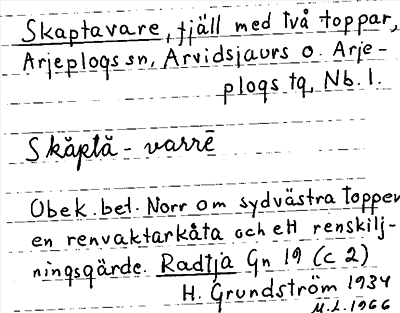 Skaptavare, fjäll med två toppar,
Arjeplogs sn, Arvidsjaurs o. Arje-
plogs tg, Nb. l.
Skăptă - varrē
Obek. bet. Norr om sydvästra toppen
en renvaktarkåta och ett renskilj-
ningsgärde. Radtja Gn 19 (C 2)
H. Grundström 1934
M.L. 1966